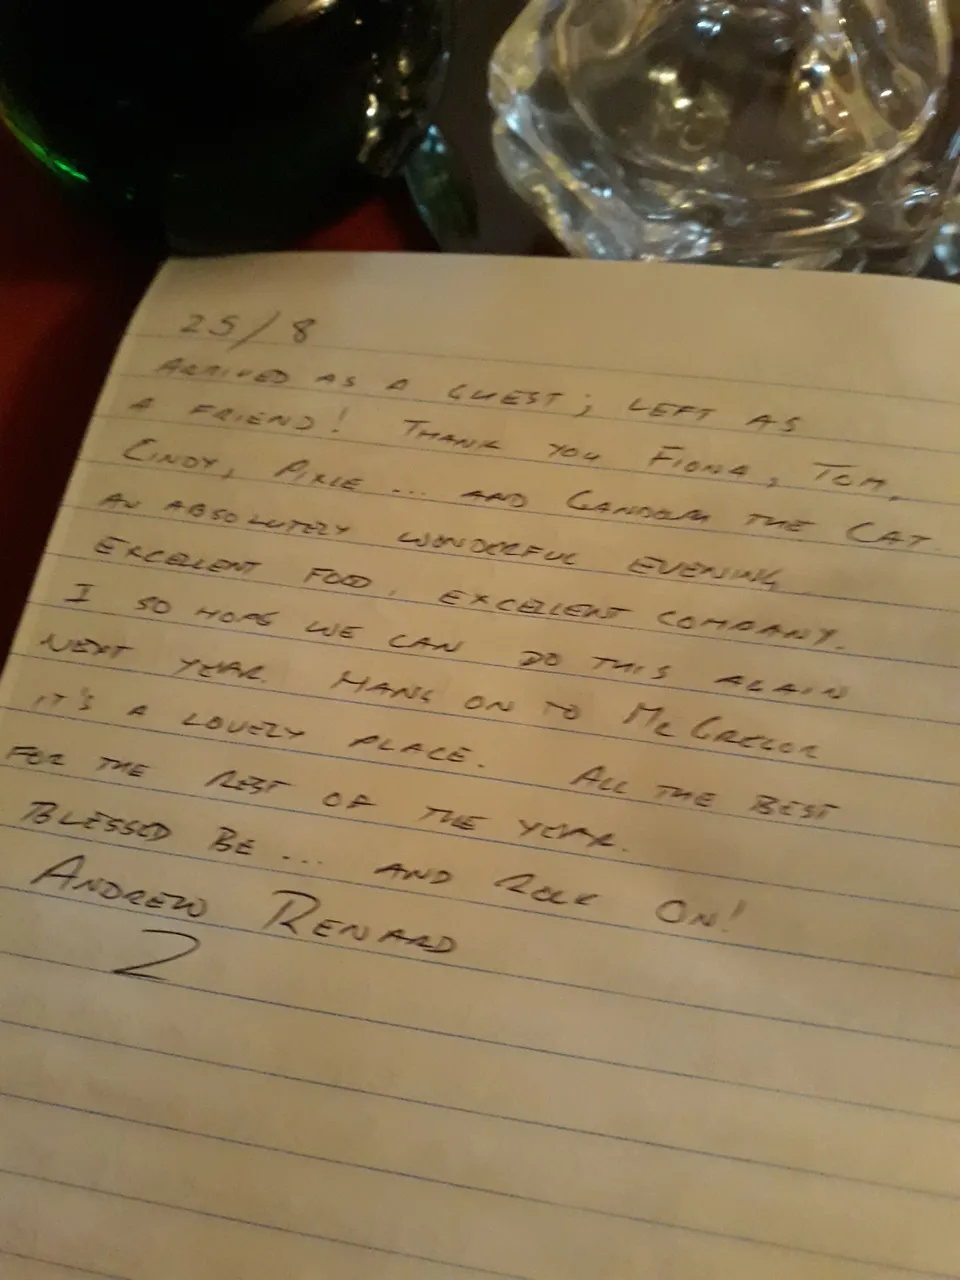 25/8
ARRIVED AS A GUEST; LEFT AS
A FRIEND! THANK YOU FIONA, TOM,
CINDY, PIXIE ... AND GANDALF THE CAT.
AN ABSOLUTELY WONDERFUL EVENING
EXCELLENT FOOD, EXCELLENT COMPANY.
I SO HOPE WE CAN DO THIS AGAIN
NEXT YEAR. HANG ON TO MCGREGOR
IT'S A LOVELY PLACE. ALL THE BEST
FOR THE REST OF THE YEAR.
BLESSED BE ... AND ROCK ON!
ANDREW RENARD
2